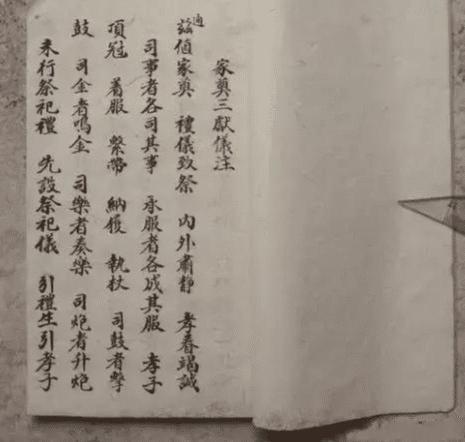 家奠三獻儀注
通
茲值家奠 禮儀致祭 內外肅靜 孝眷竭誠
司事者各司其事 承服者各成其服 孝子
頂冠 着服 繫帶 納履 執杖 司鼓者擊
鼓 司金者鳴金 司樂者奏樂 司炮者升炮
未行祭祀禮 先設祭祀儀 引禮生引孝子